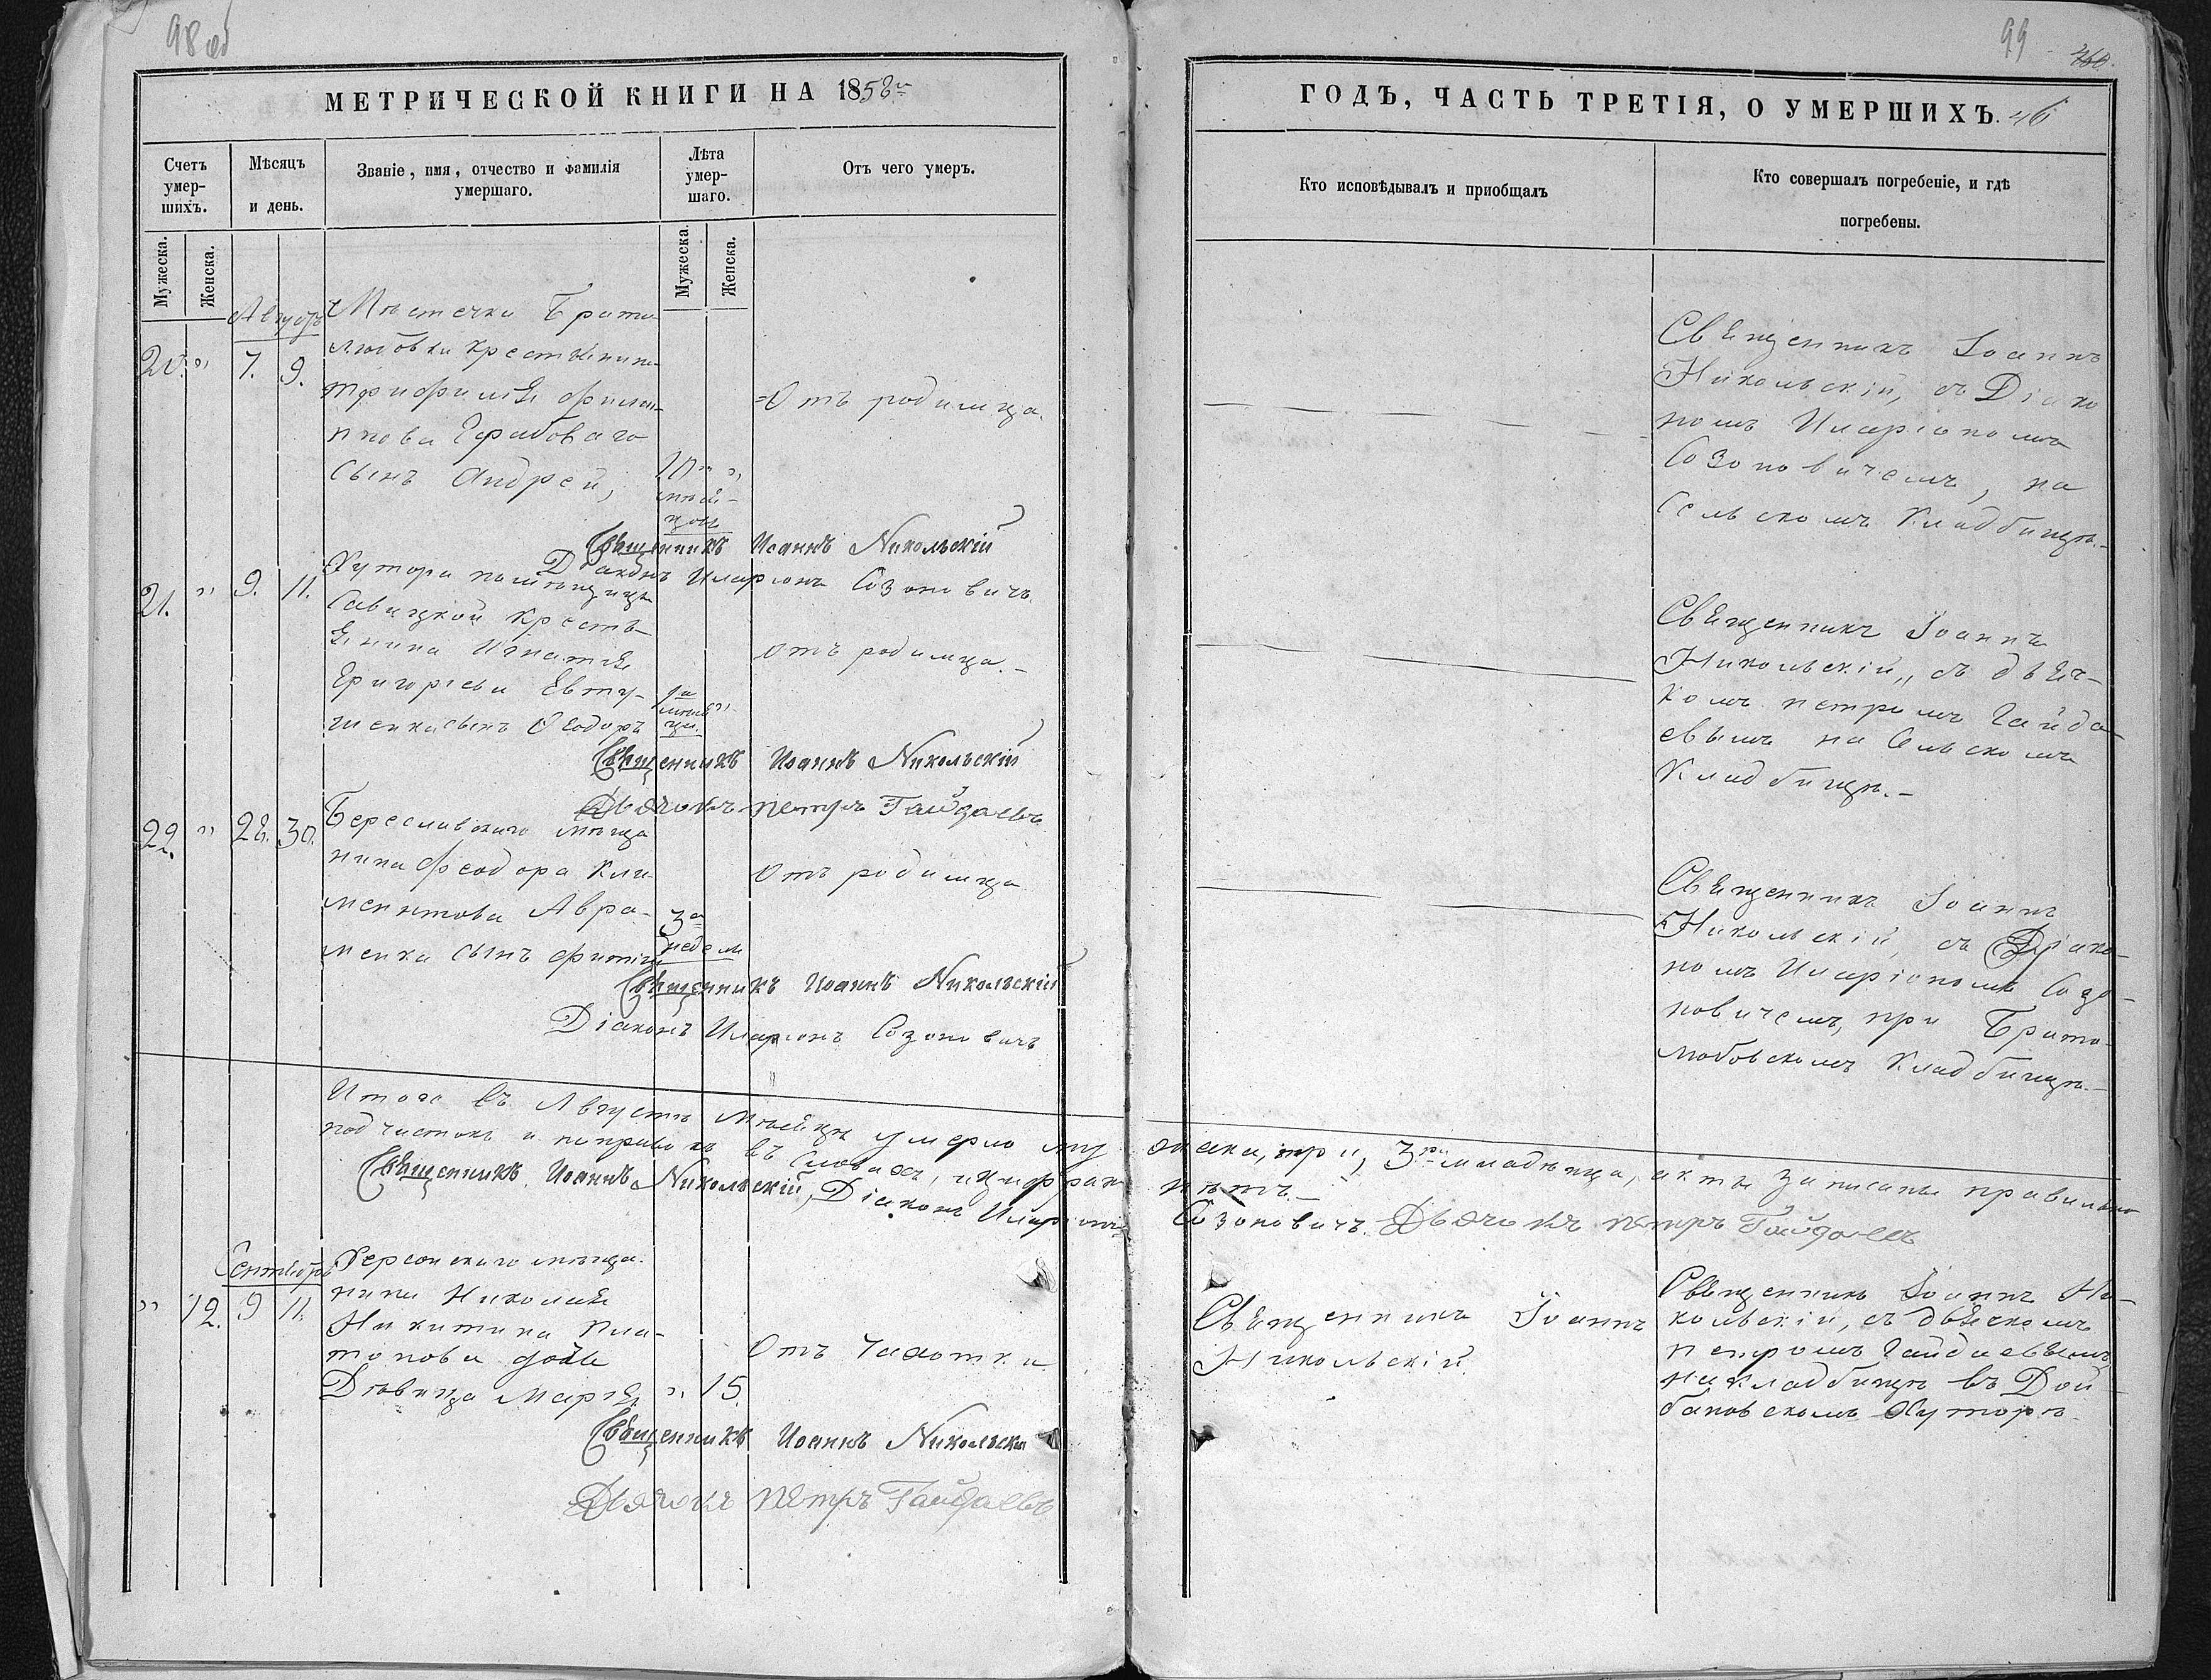 98 об
МЕТРИЧЕСКОЙ КНИГИ НА 1858й
Счетъ умер-шихъ.
Мѣсяцъ и день.
Званіе, имя, отчество и фамилія умершаго.
Лѣта умер-шаго.
Отъ чего умеръ.
Мужеска.
Женска.
Мужеска.
Женска.
Августъ
20. " 7. 9.
Мѣстечка Брато
любовки крестьянина
Трифилія Филип
пова Гарбоваго
сынъ Андрей,
10 " "
мѣся-
цовъ
=Отъ родимца.
Священникъ Иоаннъ Никольскій
Діаконъ Иларіонъ Созоновичъ
21. " 9. 11.
Хутора помѣщицы
Савицкой кресть-
янина Игнатія
Григорьева Евту-
шенка сынъ Ѳеодоръ
мѣся
ца.
отъ родимца.-
Священникъ Иоаннъ Никольскій
Дьячокъ петръ Гайдаевъ
22. " 28. 30.
Береславского мѣща
нина Феодора Кли
ментова Авра-
менка сынъ Фитий
3и
недели
Отъ родимца
Священникъ Иоаннъ Никольскій
Діаконъ Иларіонъ Созоновичъ
Итого въ Августѣ Мѣсяцѣ умерло му
подчистокъ и поправокъ въ словахъ, и цифрах
Священникъ Иоаннъ Никольскій, Діаконъ Иларіонъ
Сентябрь
" 12. 9 11.
Херсонского мѣща-
нина Николая
Никитина Пла-
тонова дочь
Дѣвица Марія
" 15.
Отъ чахотки
Священникъ Иоаннъ Никольскій
Дьячокъ петръ Гайдаевъ
99
460.
ГОДЪ, ЧАСТЬ ТРЕТІЯ, О УМЕРШИХЪ. 46
Кто исповѣдывалъ и приобщалъ
Кто совершалъ погребеніе, и гдѣ погребены.
Священникъ Іоаннъ
Никольскій, съ Діако
номъ Иларіономъ
Созоновичемъ, на
Сельскомъ Кладбищѣ.-
Священникъ Іоаннъ
Никольскій, съ дьяч-
комъ петромъ Гайда-
евымъ на Сельскомъ
Кладбищѣ.-
Священникъ Іоаннъ
Никольскій, съ Діако-
номъ Иларіономъ Созо-
новичемъ, при Брато-
любовскомъ Кладбищѣ.-
жеска, три, 3ри младѣнца, акты записаны правильно
нѣтъ.-
Созоновичъ. Дьячокъ петръ Гайдаевъ
Священникъ Іоаннъ
Никольскій.
Священникъ Іоаннъ Ни-
кольскій, съ дьячкомъ
петромъ Гайдаевымъ,
на кладбищѣ въ Дой-
бановскомъ Хуторѣ.